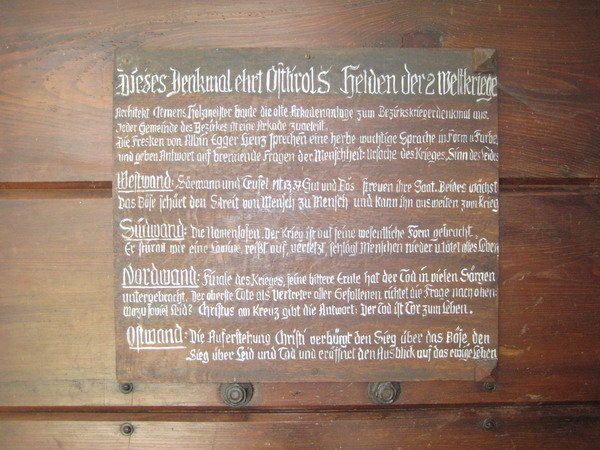 Dieses Denkmal ehrt Osttirols Helden der 2 Weltkriege
Architekt Clemens Holzmeister baute die alte Arkadenanlage zum Bezirkskriegerdenkmal aus.
Jeder Gemeinde des Bezirkes ist eine Arkade zugeteilt.
Die Fresken von Albin Egger Lienz sprechen eine herbe wuchtige Sprache in Form u. Farbe
und geben Antwort auf brennende Fragen der Menschheit: Ursache des Krieges, Sinn des Leides
Westwand: Säemann und Teufel Mt 13,37 Gut und Bös streuen ihre Saat. Beides wächst
das Böse schürt den Streit von Mensch zu Mensch und kann ihn ausweiten zum Krieg
Südwand: Die Namenlosen. Der Krieg ist auf seine wesentliche Form gebracht.
Er stürmt wie eine Lawine, reißt auf, verletzt, schlägt Menschen nieder u. tötet alles Leben
Nordwand: Finale des Krieges, seine bittere Ernte hat der Tod in vielen Särgen
untergebracht. Der oberste Tote als Vertreter aller Gefallenen richtet die Frage nach oben
Wozu soviel Leid? Christus am Kreuz gibt die Antwort: Der Tod ist Tor zum Leben.
Ostwand: Die Auferstehung Christi verbürgt den Sieg über das Böse, den
Sieg über Leid und Tod und eröffnet den Ausblick auf das ewige Leben